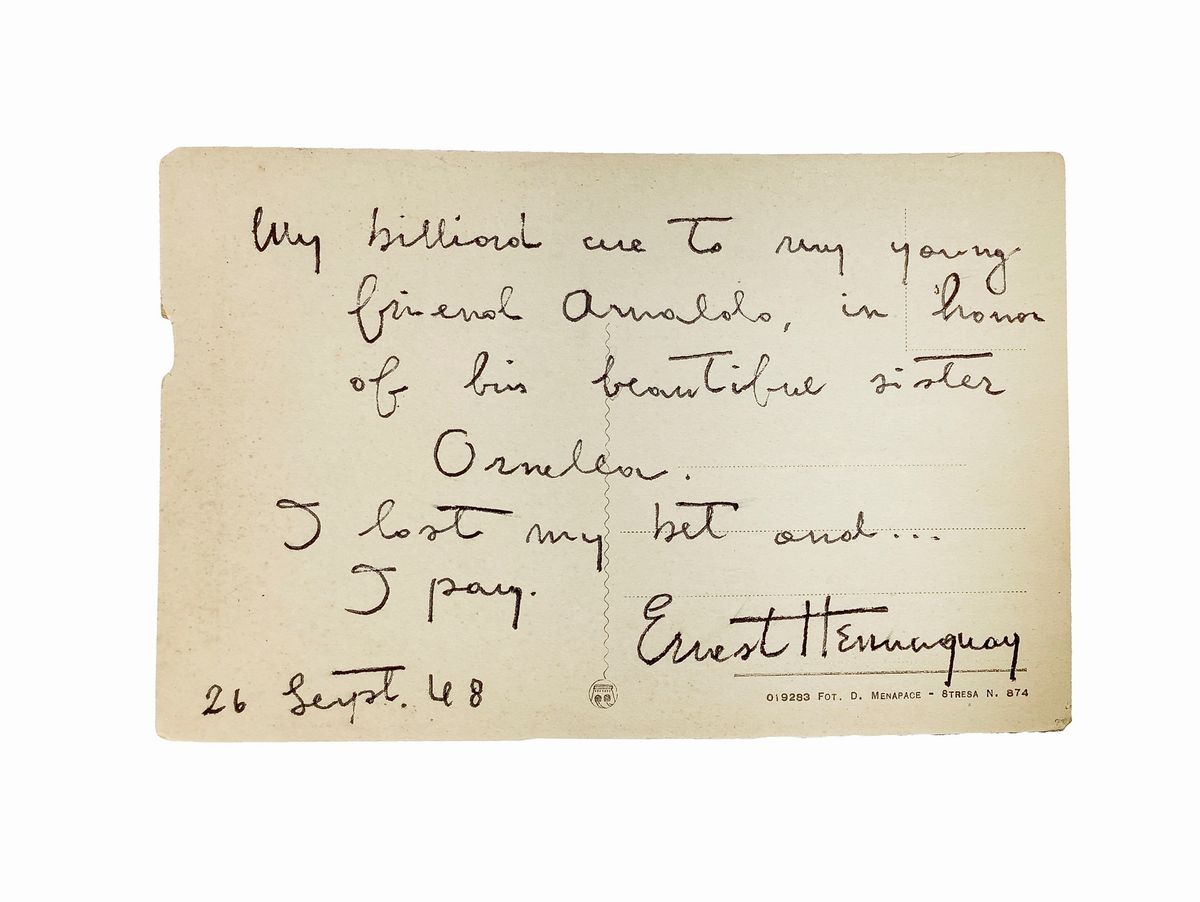 My billiard cue to my young
friend Arnaldo, in honor
of his beautiful sister
Ornella.
I lost my bet and...
I pay.
Ernest Hemingway
26 Sept. 48
019283 FOT. D. MENAPACE - STRESA N. 874